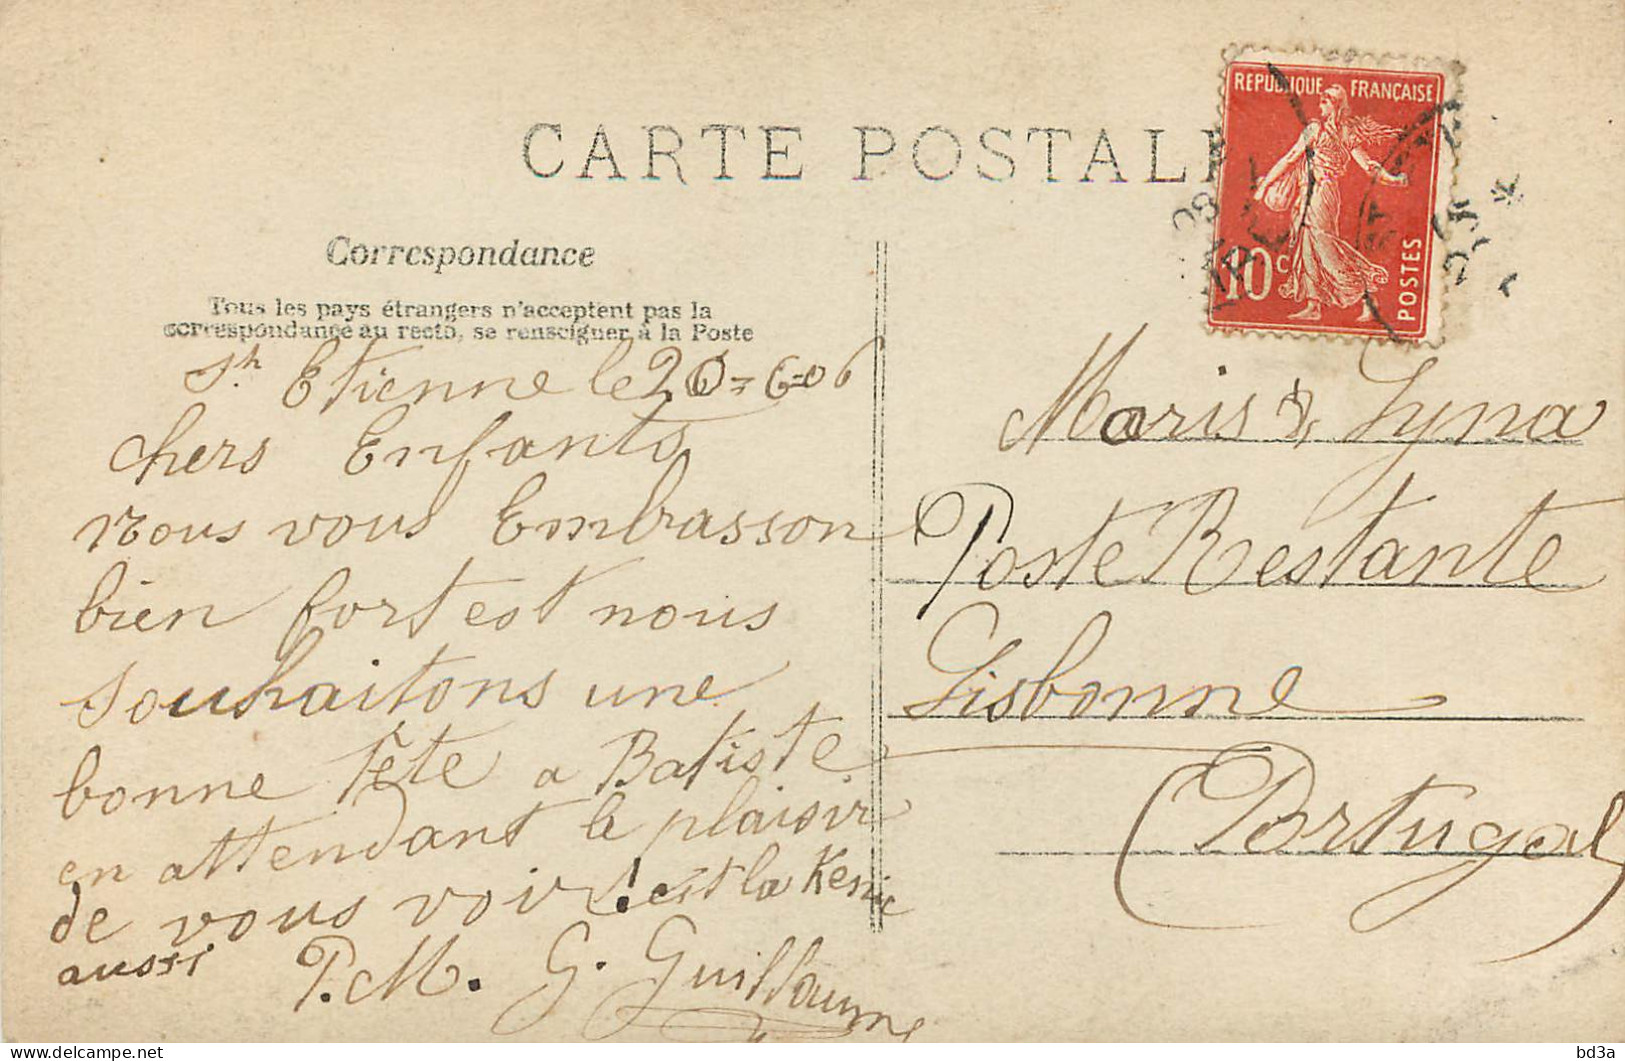 CARTE POSTALE
REPUBLIQUE FRANÇAISE
10c
POSTES
Correspondance
Tous les pays étrangers n'acceptent pas la
correspondance au recto, se renseigner à la Poste
St Etienne le 20=6=06
chers Enfants
nous vous Embrasson
bien fort est nous
souhaitons une
bonne fête a Batiste
en attendant le plaisir
de vous voir! est la
aussi
P. M. G. Guillaume
Moris & Lyna
Poste Restante
Lisbonne
Portugal
bd3a